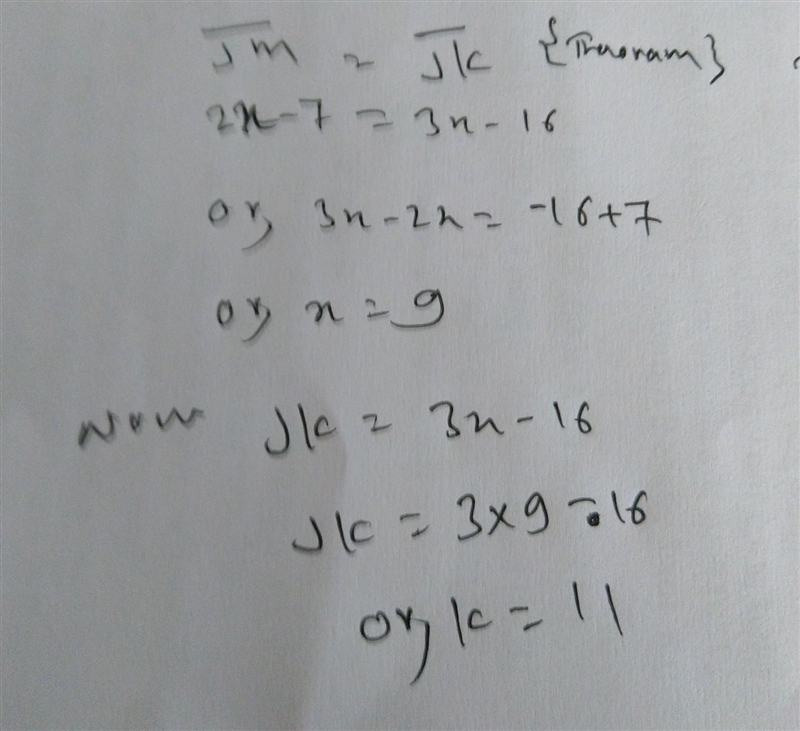 Jm = Jk {Thaoram}
2x-7 = 3x-16
or, 3x-2x= -16+7
or, x = 9
Now Jk = 3x-16
Jk = 3×9-16
or, k = 11